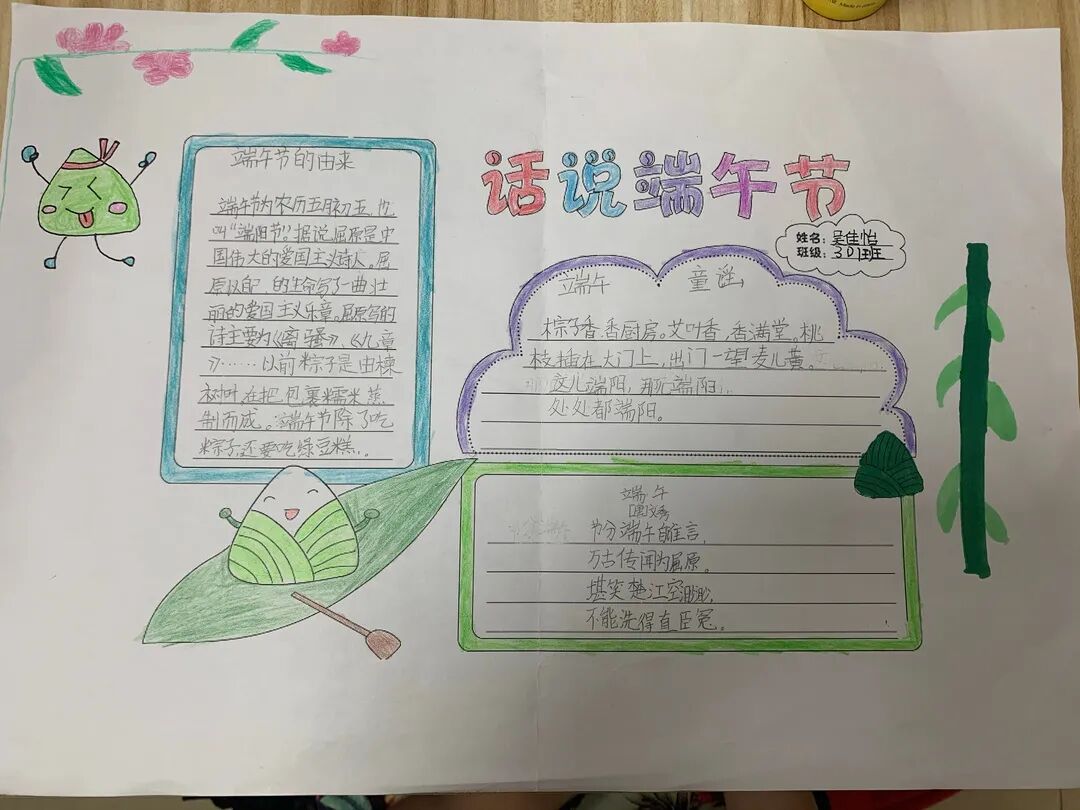 话说端午节
姓名：吴佳怡
班级：301班
端午节的由来
端午节为农历五月初五，也
叫“端阳节”。据说屈原是中
国伟大的爱国主义诗人。屈
原以自己的生命写了一曲壮
丽的爱国主义乐章。屈原写的
诗主要为《离骚》、《九章
》……以前粽子是由楝
树叶在把包裹糯米蒸
制而成。端午节除了吃
粽子，还要吃绿豆糕。
端午 童谣
粽子香，香厨房。艾叶香，香满堂。桃
枝插在大门上，出门一望麦儿黄。
这儿端阳，那儿端阳，
处处都端阳。
端午
[唐]文秀
节分端午自谁言，
万古传闻为屈原。
堪笑楚江空渺渺，
不能洗得直臣冤。